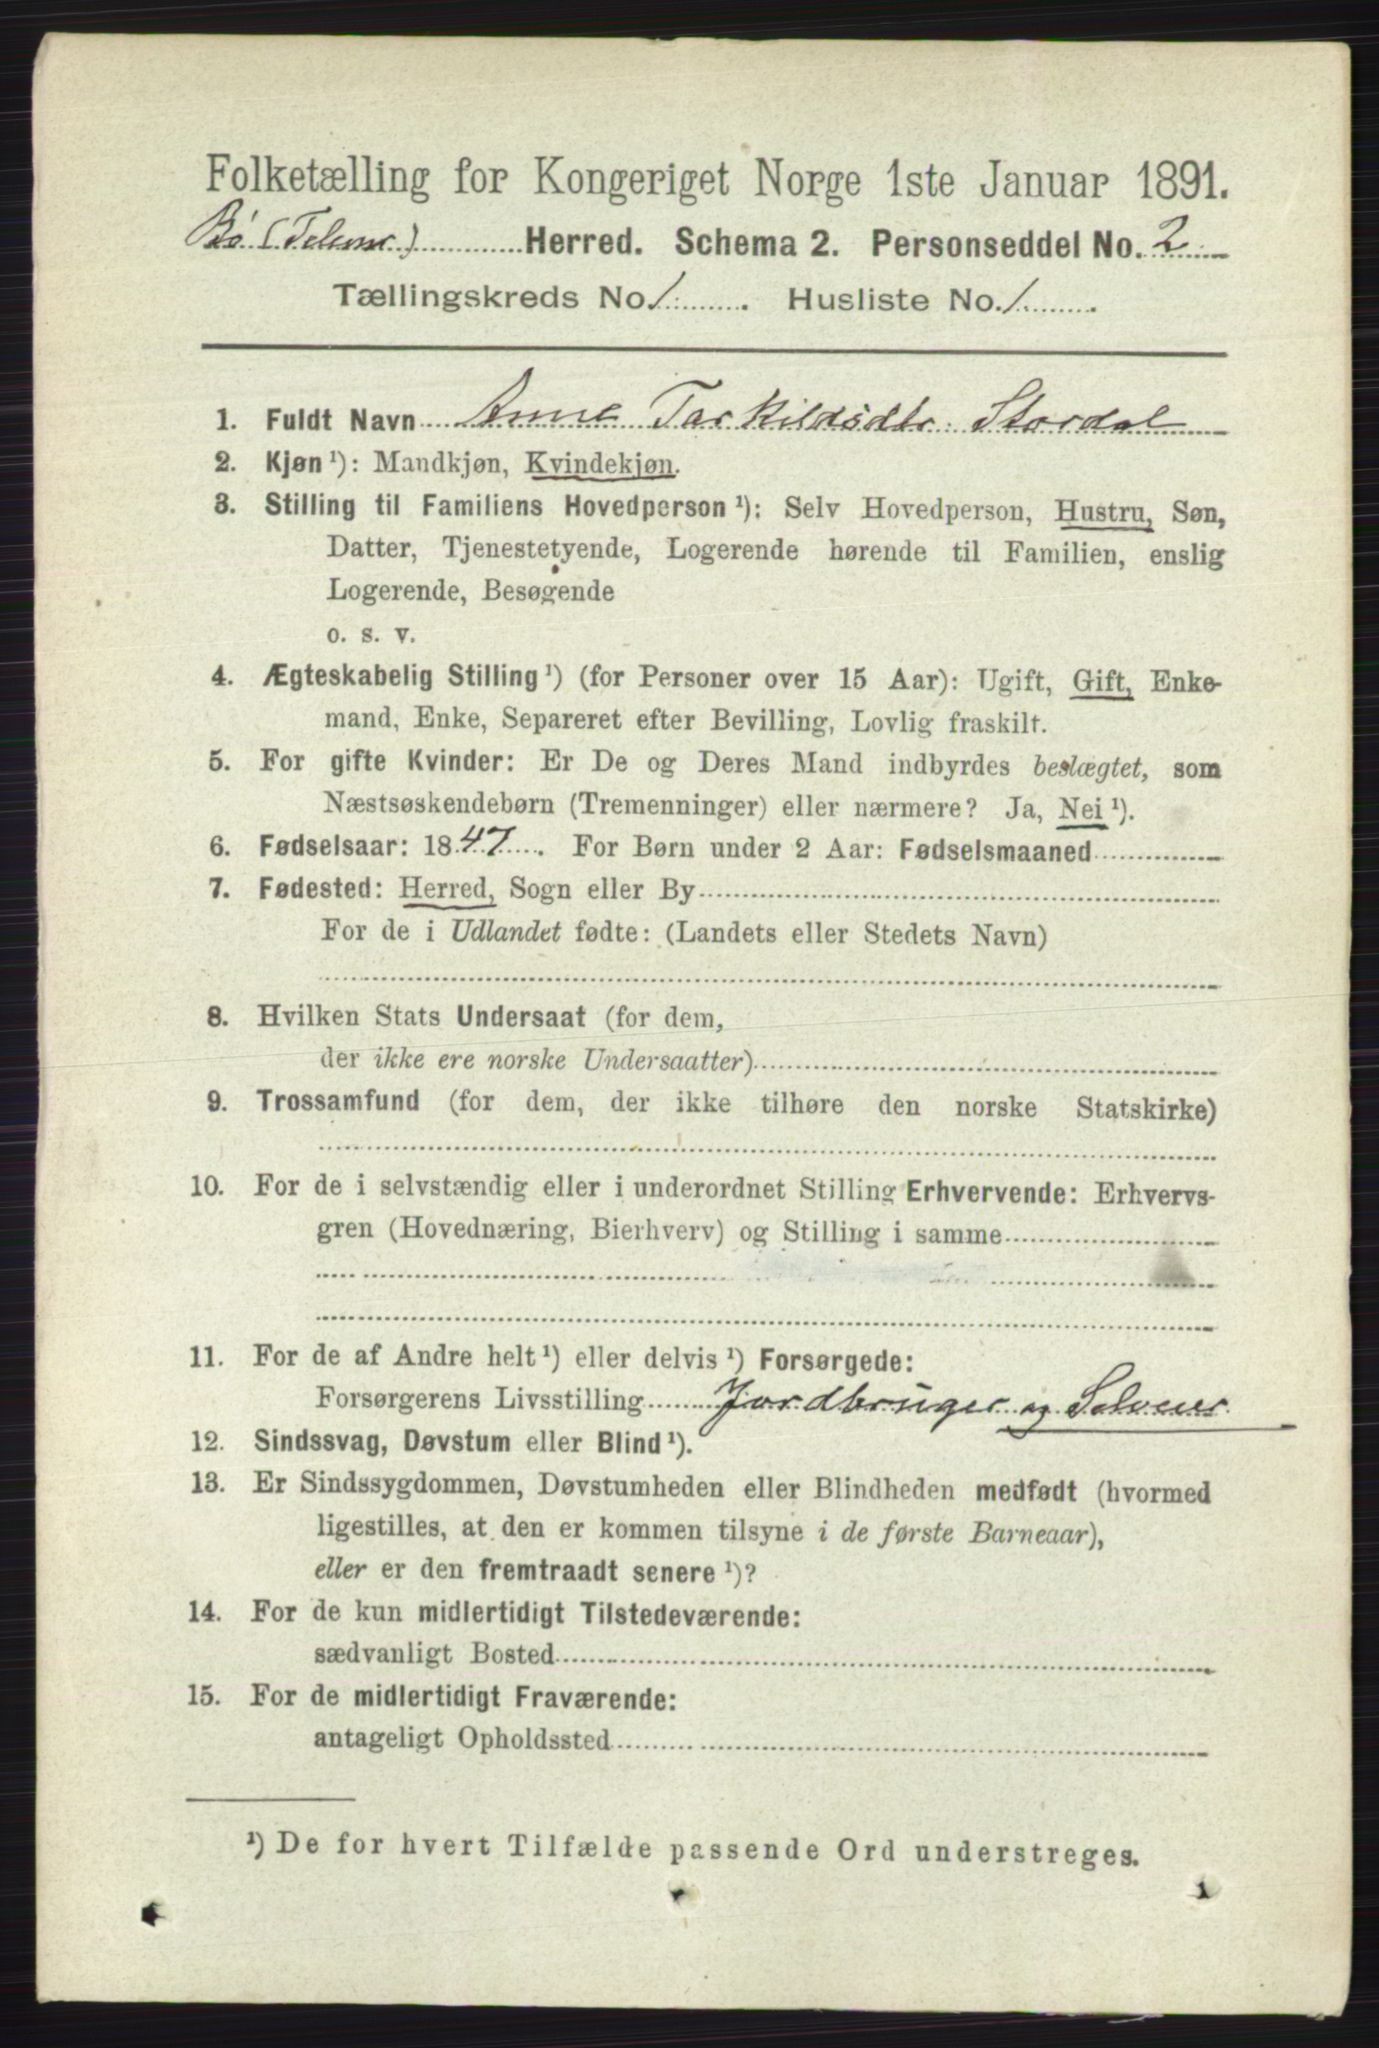 Folketælling for Kongeriget Norge 1ste Januar 1891.
Bø (Telem.) Herred. Schema 2. Personseddel No. 2
Tællingskreds No. 1. Husliste No. 1.
1. Fuldt Navn Anne Tarkildsdtr. Stordal
2. Kjøn ¹): Mandkjøn, Kvindekjøn.
3. Stilling til Familiens Hovedperson ¹): Selv Hovedperson, Hustru, Søn,
Datter, Tjenestetyende, Logerende hørende til Familien, enslig
Logerende, Besøgende
o. s. v.
4. Ægteskabelig Stilling ¹) (for Personer over 15 Aar): Ugift, Gift, Enke-
mand, Enke, Separeret efter Bevilling, Lovlig fraskilt.
5. For gifte Kvinder: Er De og Deres Mand indbyrdes beslægtet, som
Næstsøskendebørn (Tremenninger) eller nærmere? Ja, Nei ¹).
6. Fødselsaar: 1847. For Børn under 2 Aar: Fødselsmaaned
7. Fødested: Herred, Sogn eller By
For de i Udlandet fødte: (Landets eller Stedets Navn)
8. Hvilken Stats Undersaat (for dem,
der ikke ere norske Undersaatter)
9. Trossamfund (for dem, der ikke tilhøre den norske Statskirke)
10. For de i selvstændig eller i underordnet Stilling Erhvervende: Erhvervs-
gren (Hovednæring, Bierhverv) og Stilling i samme
11. For de af Andre helt ¹) eller delvis ¹) Forsørgede:
Forsørgerens Livsstilling Jordbruger og Selveier
12. Sindssvag, Døvstum eller Blind ¹).
13. Er Sindssygdommen, Døvstumheden eller Blindheden medfødt (hvormed
ligestilles, at den er kommen tilsyne i de første Barneaar),
eller er den fremtraadt senere ¹)?
14. For de kun midlertidigt Tilstedeværende:
sædvanligt Bosted
15. For de midlertidigt Fraværende:
antageligt Opholdssted
¹) De for hvert Tilfælde passende Ord understreges.